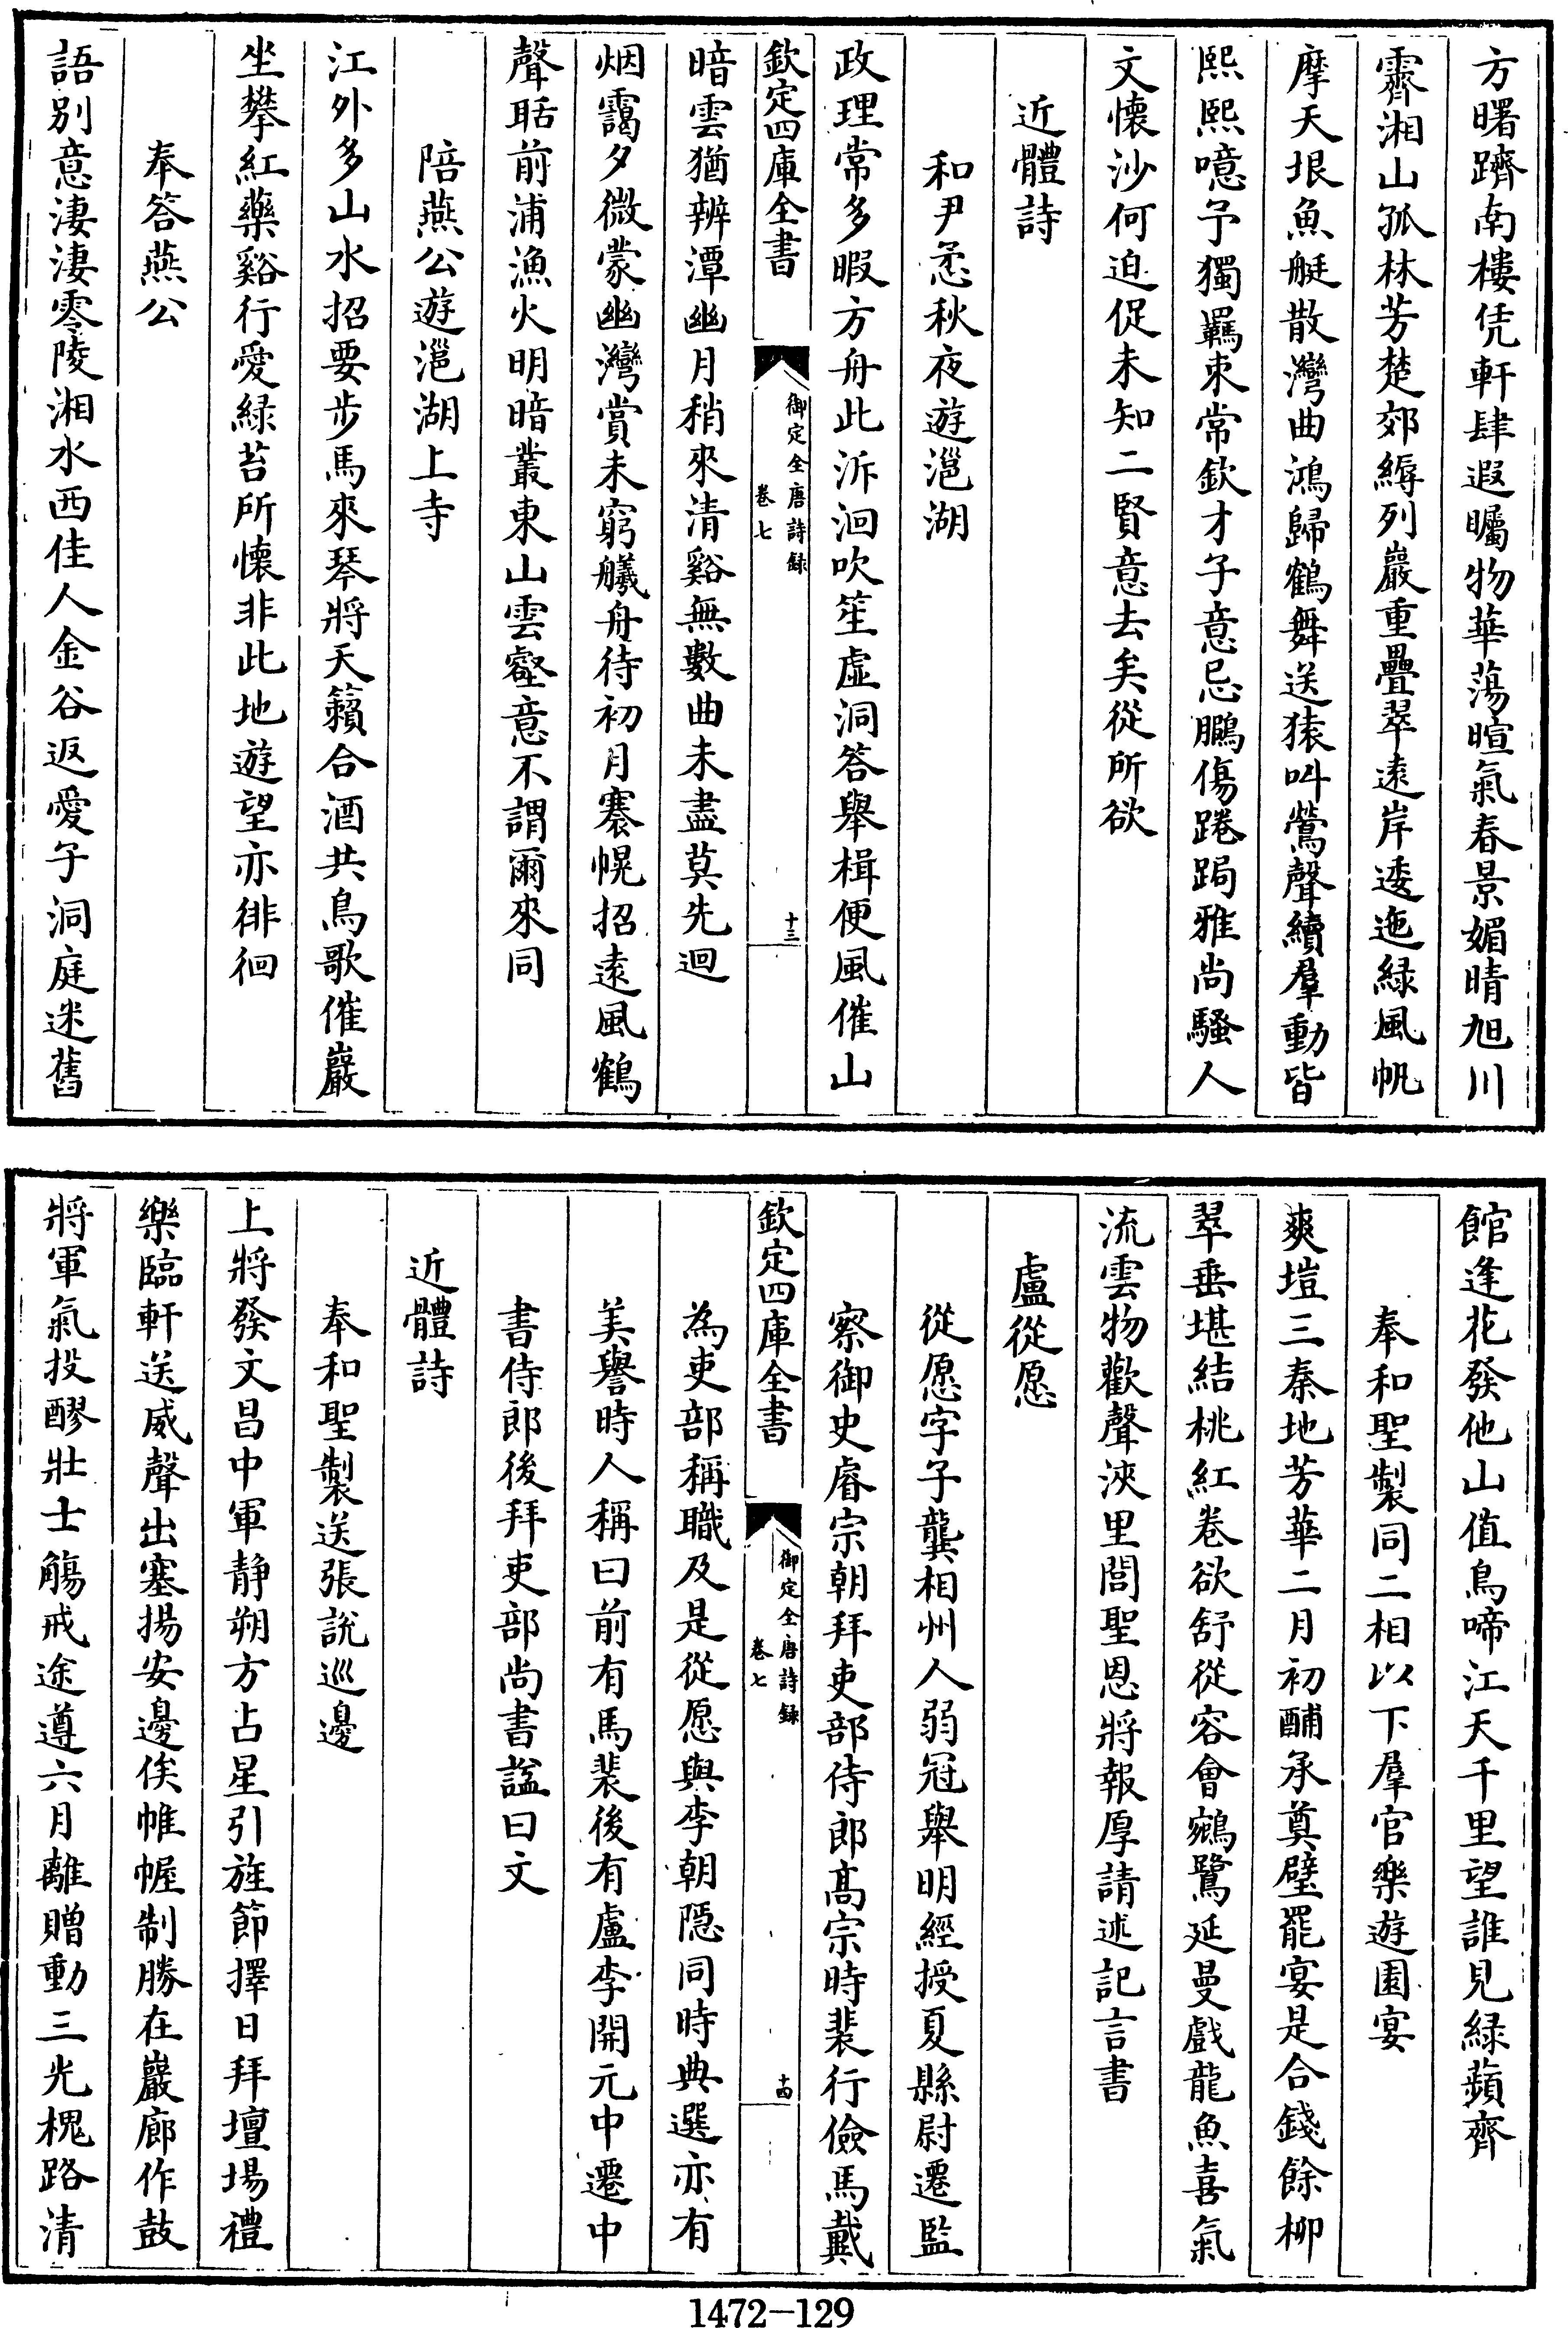 方曙躋南樓凭軒肆遐矚物華蕩暄氣春景媚晴旭川
霽湘山孤林芳楚郊縟列巖重疊翠遠岸逶迤緑風帆
摩天垠魚艇散灣曲鴻歸鶴舞送猿叫鶯聲續羣動皆
熙熙噫予獨羈束常欽才子意忌鵩傷踡跼雅尚騷人
文懷沙何迫促未知二賢意去矣從所欲
近體詩
和尹懋秋夜遊㴩湖
政理常多暇方舟此泝洄吹笙虛洞答舉楫便風催山
欽定四庫全書
御定全唐詩録
卷七
十三
暗雲猶辨潭幽月稍來清谿無數曲未盡莫先迴
烟靄夕微蒙幽灣賞未窮艤舟待初月褰幌招遠風鶴
聲聒前浦漁火明暗叢東山雲壑意不謂爾來同
陪燕公遊㴩湖上寺
江外多山水招要步馬來琴將天籟合酒共鳥歌催巖
坐攀紅藥谿行愛緑苔所懷非此地遊望亦徘徊
奉答燕公
語別意淒淒零陵湘水西佳人金谷返愛子洞庭迷舊
館逢花發他山值鳥啼江天千里望誰見緑蘋齊
奉和聖製同二相以下羣官樂遊園宴
爽塏三秦地芳華二月初酺承奠璧罷宴是合錢餘柳
翠垂堪結桃紅卷欲舒從容會鵷鷺延曼戲龍魚喜氣
流雲物歡聲浹里閭聖恩將報厚請述記言書
盧從愿
從愿字子龔相州人弱冠舉明經授夏縣尉遷監
察御史睿宗朝拜吏部侍郎髙宗時裴行儉馬戴
欽定四庫全書
御定全唐詩録
卷七
十四
為吏部稱職及是從愿與李朝隱同時典選亦有
美譽時人稱曰前有馬裴後有盧李開元中遷中
書侍郎後拜吏部尚書諡曰文
近體詩
奉和聖製送張說巡邊
上將發文昌中軍静朔方占星引旌節擇日拜壇場禮
樂臨軒送威聲出塞揚安邊俟帷幄制勝在巖廊作鼓
將軍氣投醪壯士觴戒途遵六月離贈動三光槐路清
1472-129